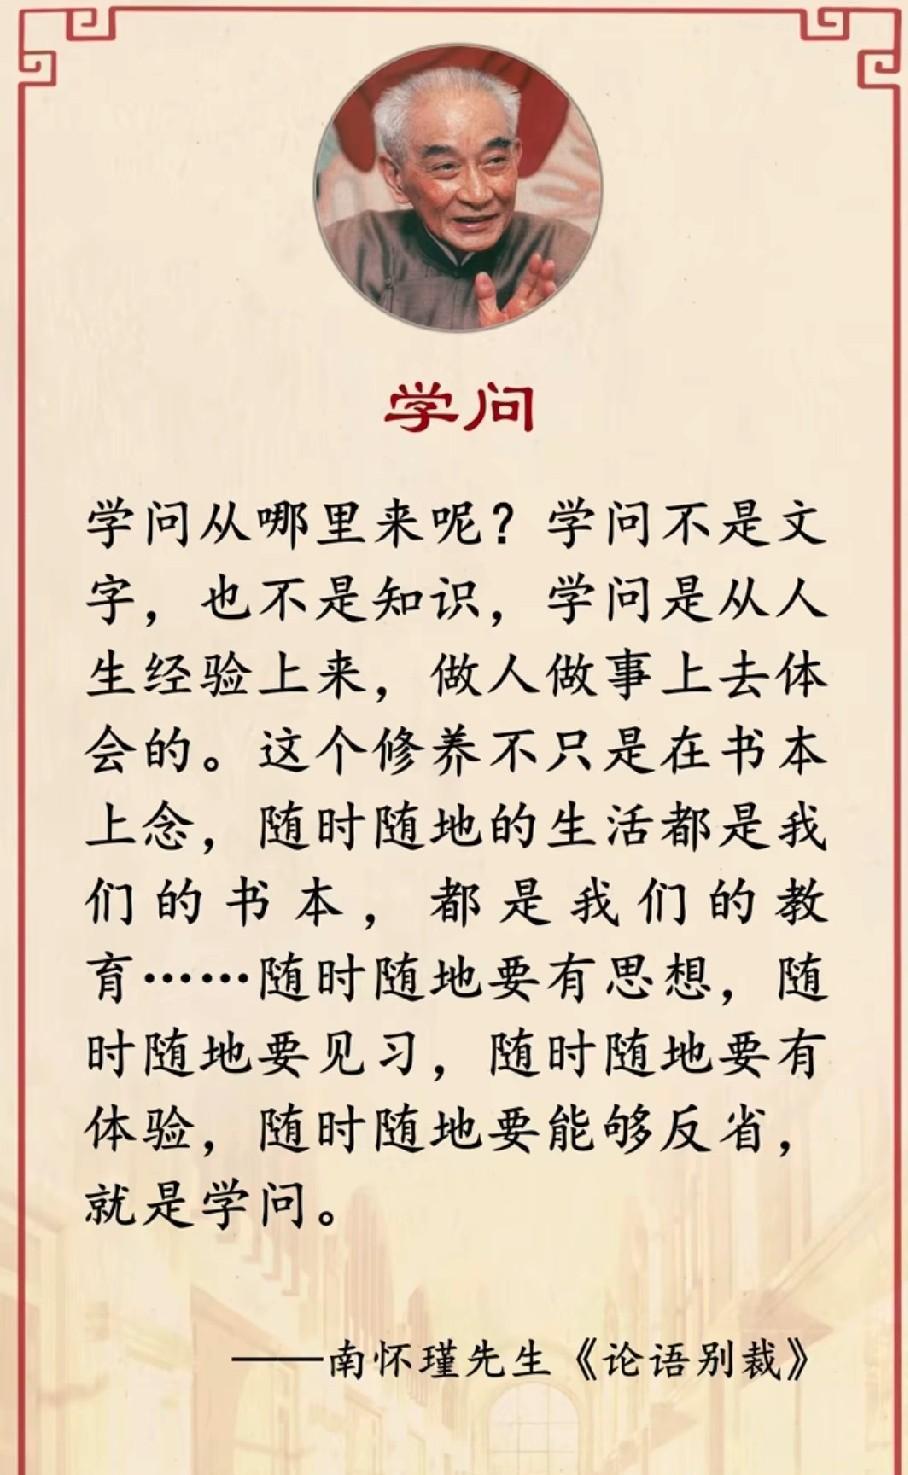 学问
学问从哪里来呢？学问不是文
字，也不是知识，学问是从人
生经验上来，做人做事上去体
会的。这个修养不只是在书本
上念，随时随地的生活都是我
们的书本，都是我们的教
育……随时随地要有思想，随
时随地要见习，随时随地要有
体验，随时随地要能够反省，
就是学问。
——南怀瑾先生《论语别裁》